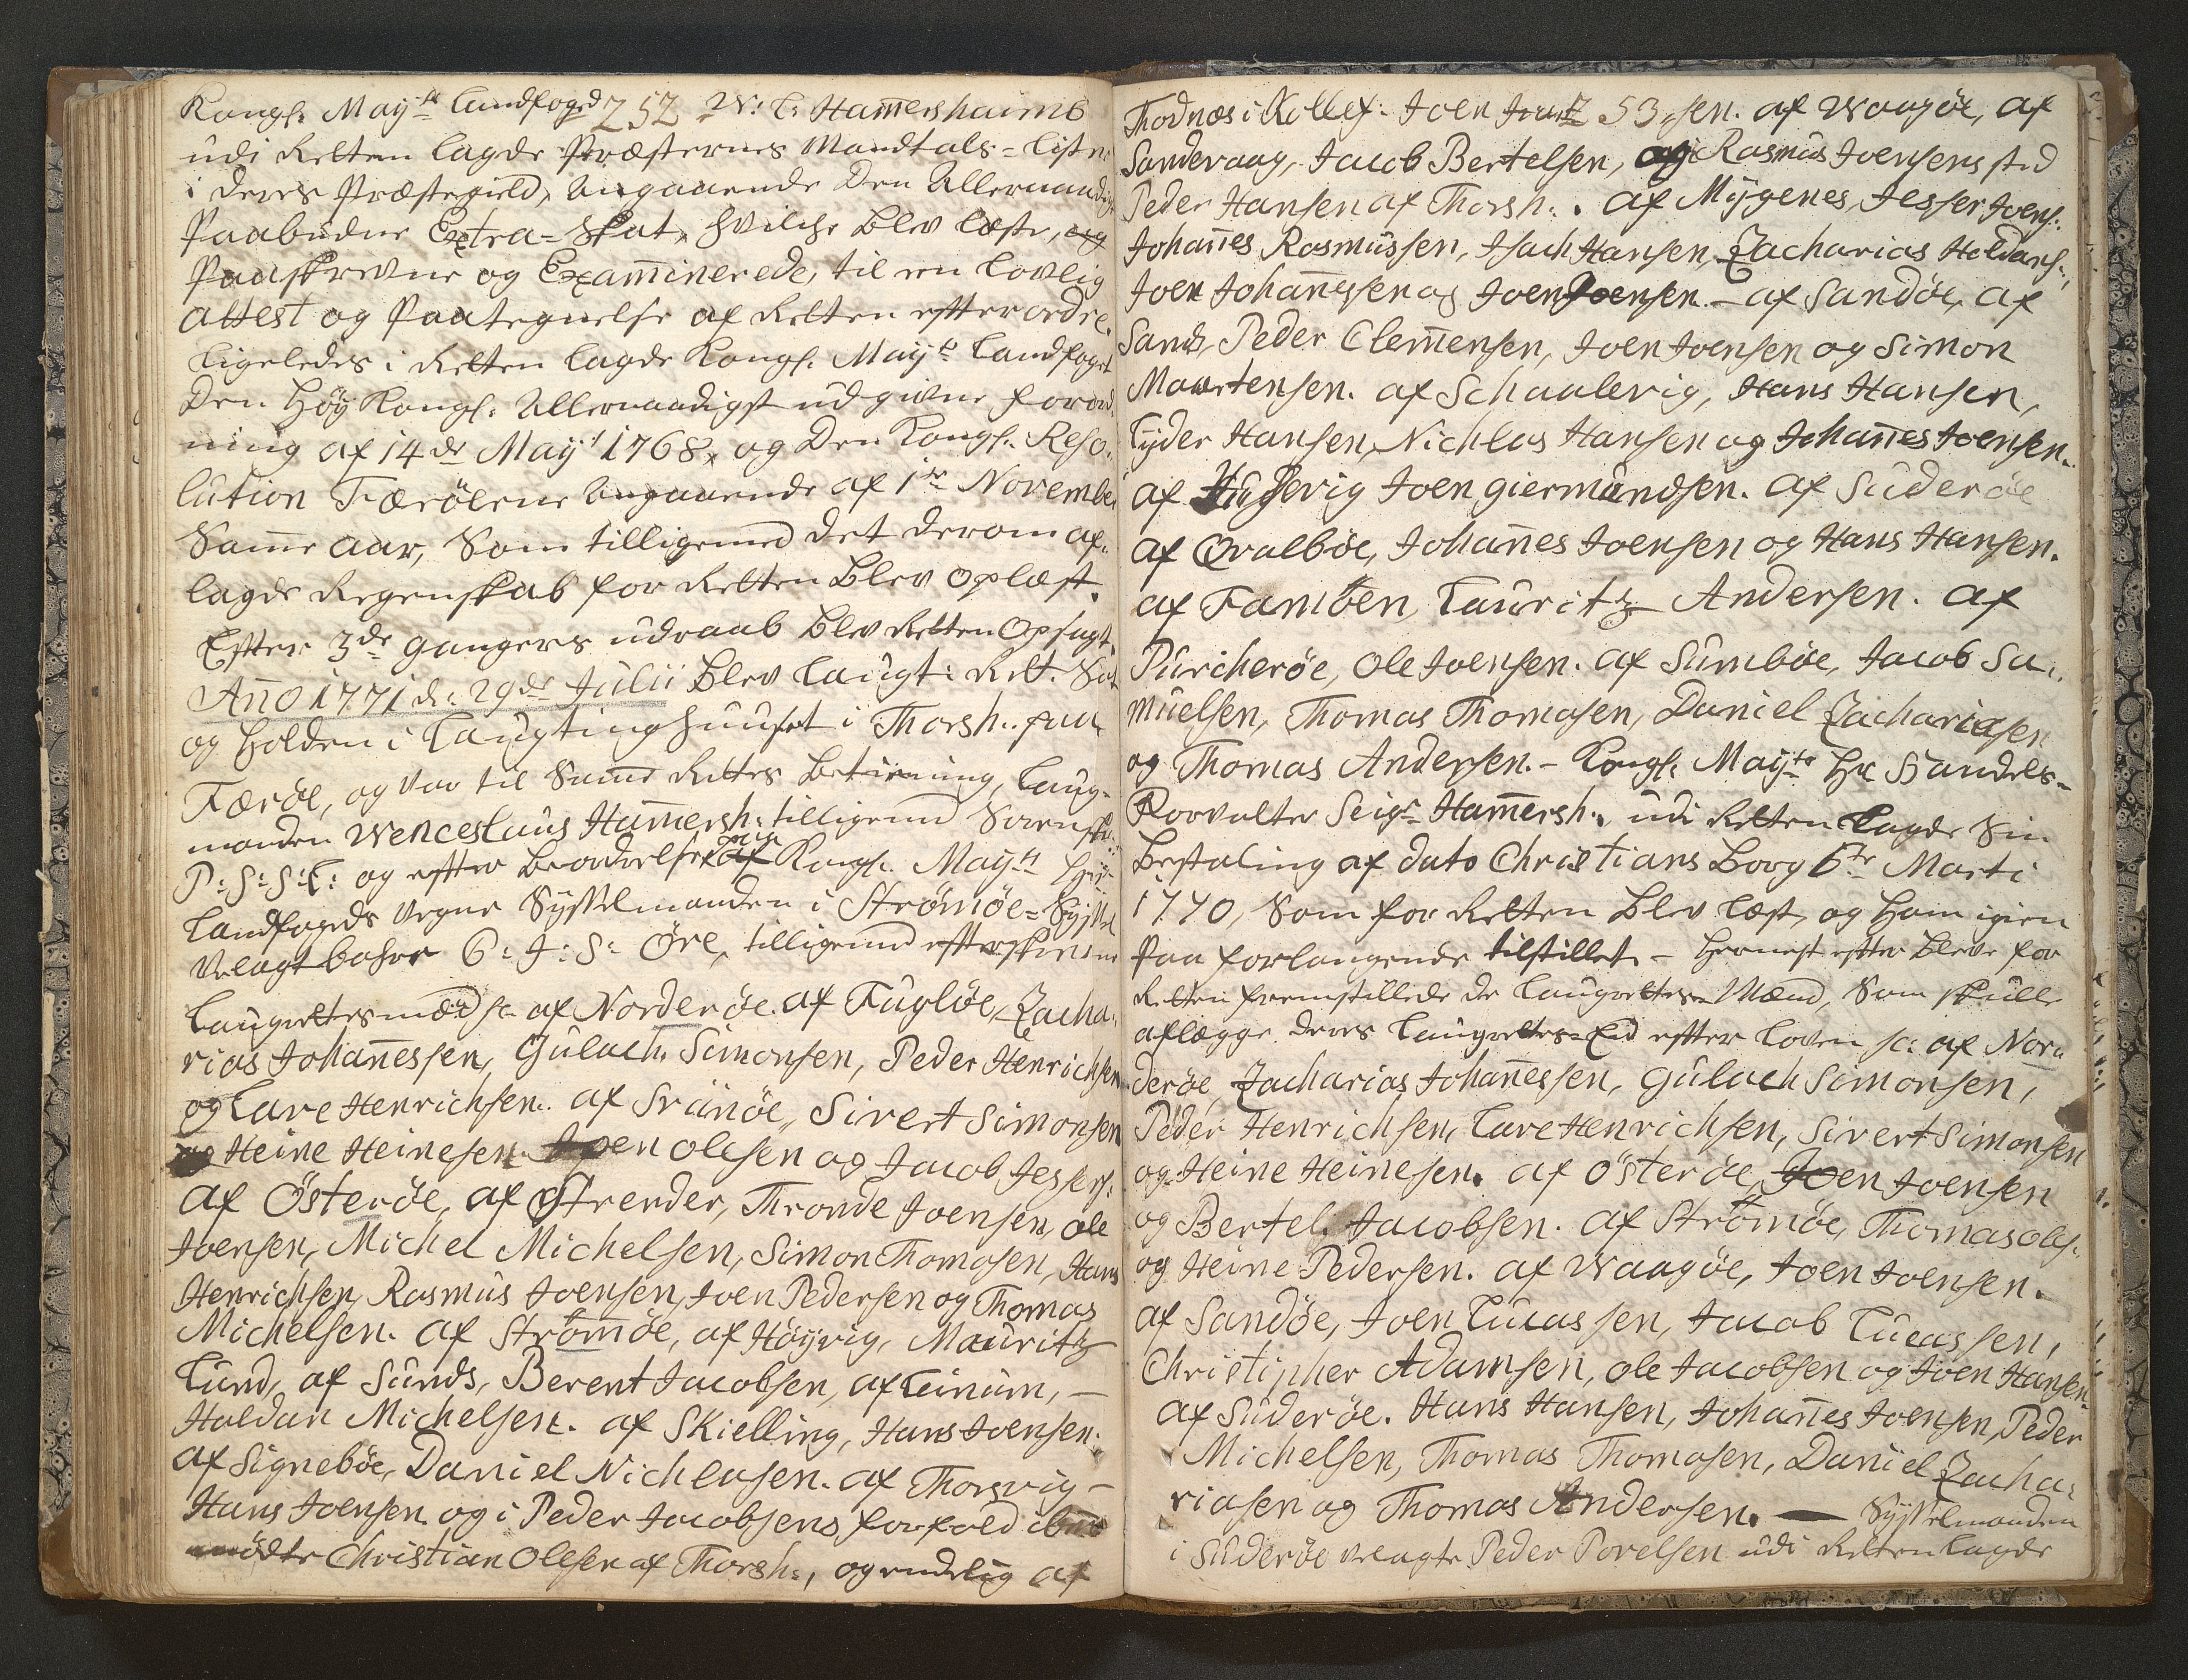 Kongl: Mayts Landfoged 252 W: L: Hammershaimb
udi Retten lagde Præsternes Mandtals-Lister
i deres Præstegield, angaaende den Allernaadigst
Paabudne Extra-Skat, hvilche blev læste, og
Paaskrevne og Examinerede, til en lovlig
attest og Paategnelse af Retten efter ordre.
Ligeledes i Retten lagde Kongl. Mayts Landfoget
den Høy Kongl: Allernaadigst udgivne Forord-
ning af 14de Mayi 1768, og den Kongl. Reso-
lution Færøerne angaaende af 1ste November
Samme aar, Som tilligemed det derom af-
lagde Regenskab for Retten blev oplæst.
Efter 3de ganges udraab blev Retten opsagt.
Anno 1771 d: 29de Julii blev Laugt: Ret. Sat
og holden i Laugtinghuuset i Thorsh: paa
Færøe, og var til Samme Rettes betiening, Laug-
manden Wenceslaus Hammersh: tilligemed Sorenskr:
P: S: S: L: og efter beordrelse paa Kongl. Mayts Hr:
Landfogeds Vegne Sysselmanden i Strømøe-Syssel
Velagtbahre C: J: S: Øre, tilligemed efterskrevne
Laugrettesmænd sc. af Norderøe. af Fugløe, Zacha-
rias Johannessen, Gulach Simonsen, Peder Henrichsen
og Lare Henrichsen. af Svinøe, Sivert Simonsen
og Heine Heinesen. Joen Olesen og Jacob Jespers:
af Østerøe, af Strender, Thronde Joensen, Ole
Joensen, Michel Michelsen, Simon Thomasen, Hans
Henrichsen, Rasmus Joensen, Joen Pedersen og Thomas
Michelsen. af Strømøe, af Høyvig, Mauritz
Lund, af Sunds, Berent Jacobsen, af Leinum, –
Haldan Michelsen. af Skielling, Hans Joensen.
af Signebøe, Daniel Nichlasen. af Thorsvig –
Hans Joensen og i Peder Jacobsens forfald
mødte Christian Olesen af Thorsh:, og endelig af
Thodnæs i Kollef: Joen 253 sen. af Waagøe, af
Sandevaag, Jacob Bertelsen, og i Rasmus Joensens sted
Peder Hansen af Thorsh:. af Mygenes, Jesper Joens:
Johannes Rasmussen, Isach Hansen, Zacharias Haldans:,
Joen Johannesen og Joen Joensen. – af Sandøe, af
Sand, Peder Clemmensen, Joen Joensen og Simon
Mortensen. af Schaalevig, Hans Hansen,
Lyder Hansen, Nichlas Hansen og Johannes Joensen.
af Husevig Joen Giermundsen. af Suderøe
af Qvalbøe, Johannes Joensen og Hans Hansen.
af Famben, Lauritz Andersen. af
Purcherøe, Ole Joensen. af Sumbøe, Jacob Sa-
muelsen, Thomas Thomasen, Daniel Zachariasen
og Thomas Andersen. – Kongl. Mayts Hr Handels-
Forvalter Seigr Hammersh:, udi Retten lagde Sin
Bestaling af dato Christians Borg 6te Marti
1770, Som for Retten blev læst, og ham igien
Paa forlangende tilstillet. – Hernest efter bleve for
Retten fremstillede de Laugrettes-Mænd, Som skulle
aflægge deres Laugrettes-Eid efter Loven sc: af Nor-
derøe, Zacharias Johannessen, Gulach Simonsen,
Peder Henrichsen, Lare Henrichsen, Sivert Simonsen
og Heine Heinesen. af Østerøe, Joen Joensen
og Bertel Jacobsen. af Strømøe, Thomas Oles:
og Heine Pedersen. af Waagøe, Joen Joensen.
af Sandøe, Joen Lucassen, Jacob Lucassen,
Christipher Adamsen, Ole Jacobsen og Joen Hansen.
af Suderøe. Hans Hansen, Johannes Joensen, Peder
Michelsen, Thomas Thomasen, Daniel Zacha-
riasen og Thomas Andersen. — Sysselmanden
i Suderøe velagte Peder Povelsen udi Retten lagde